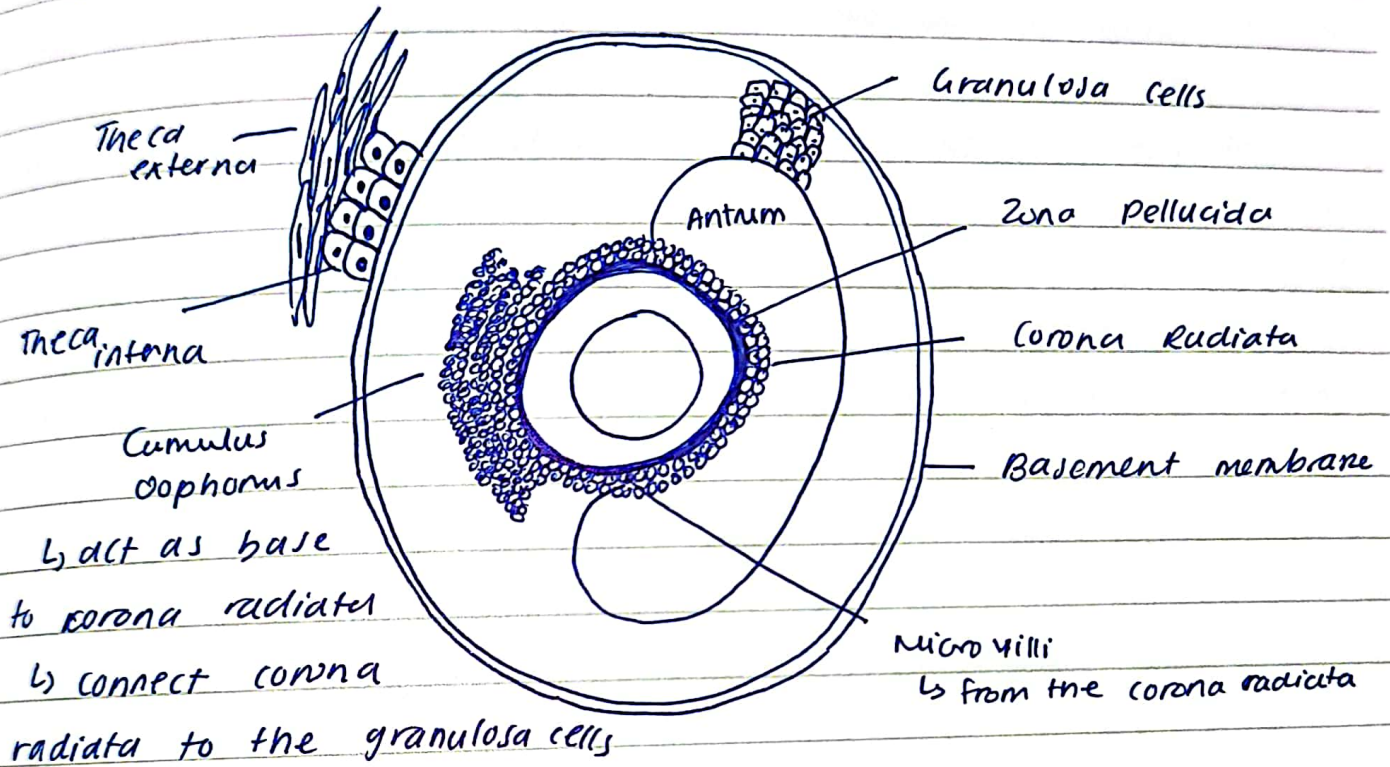 Theca
externa
Theca interna
Cumulus
oophorus
↳ act as base
to corona radiata
↳ connect corona
radiata to the granulosa cells
Antrum
Granulosa cells
Zona Pellucida
Corona Radiata
Basement membrane
Microvilli
↳ from the corona radiata